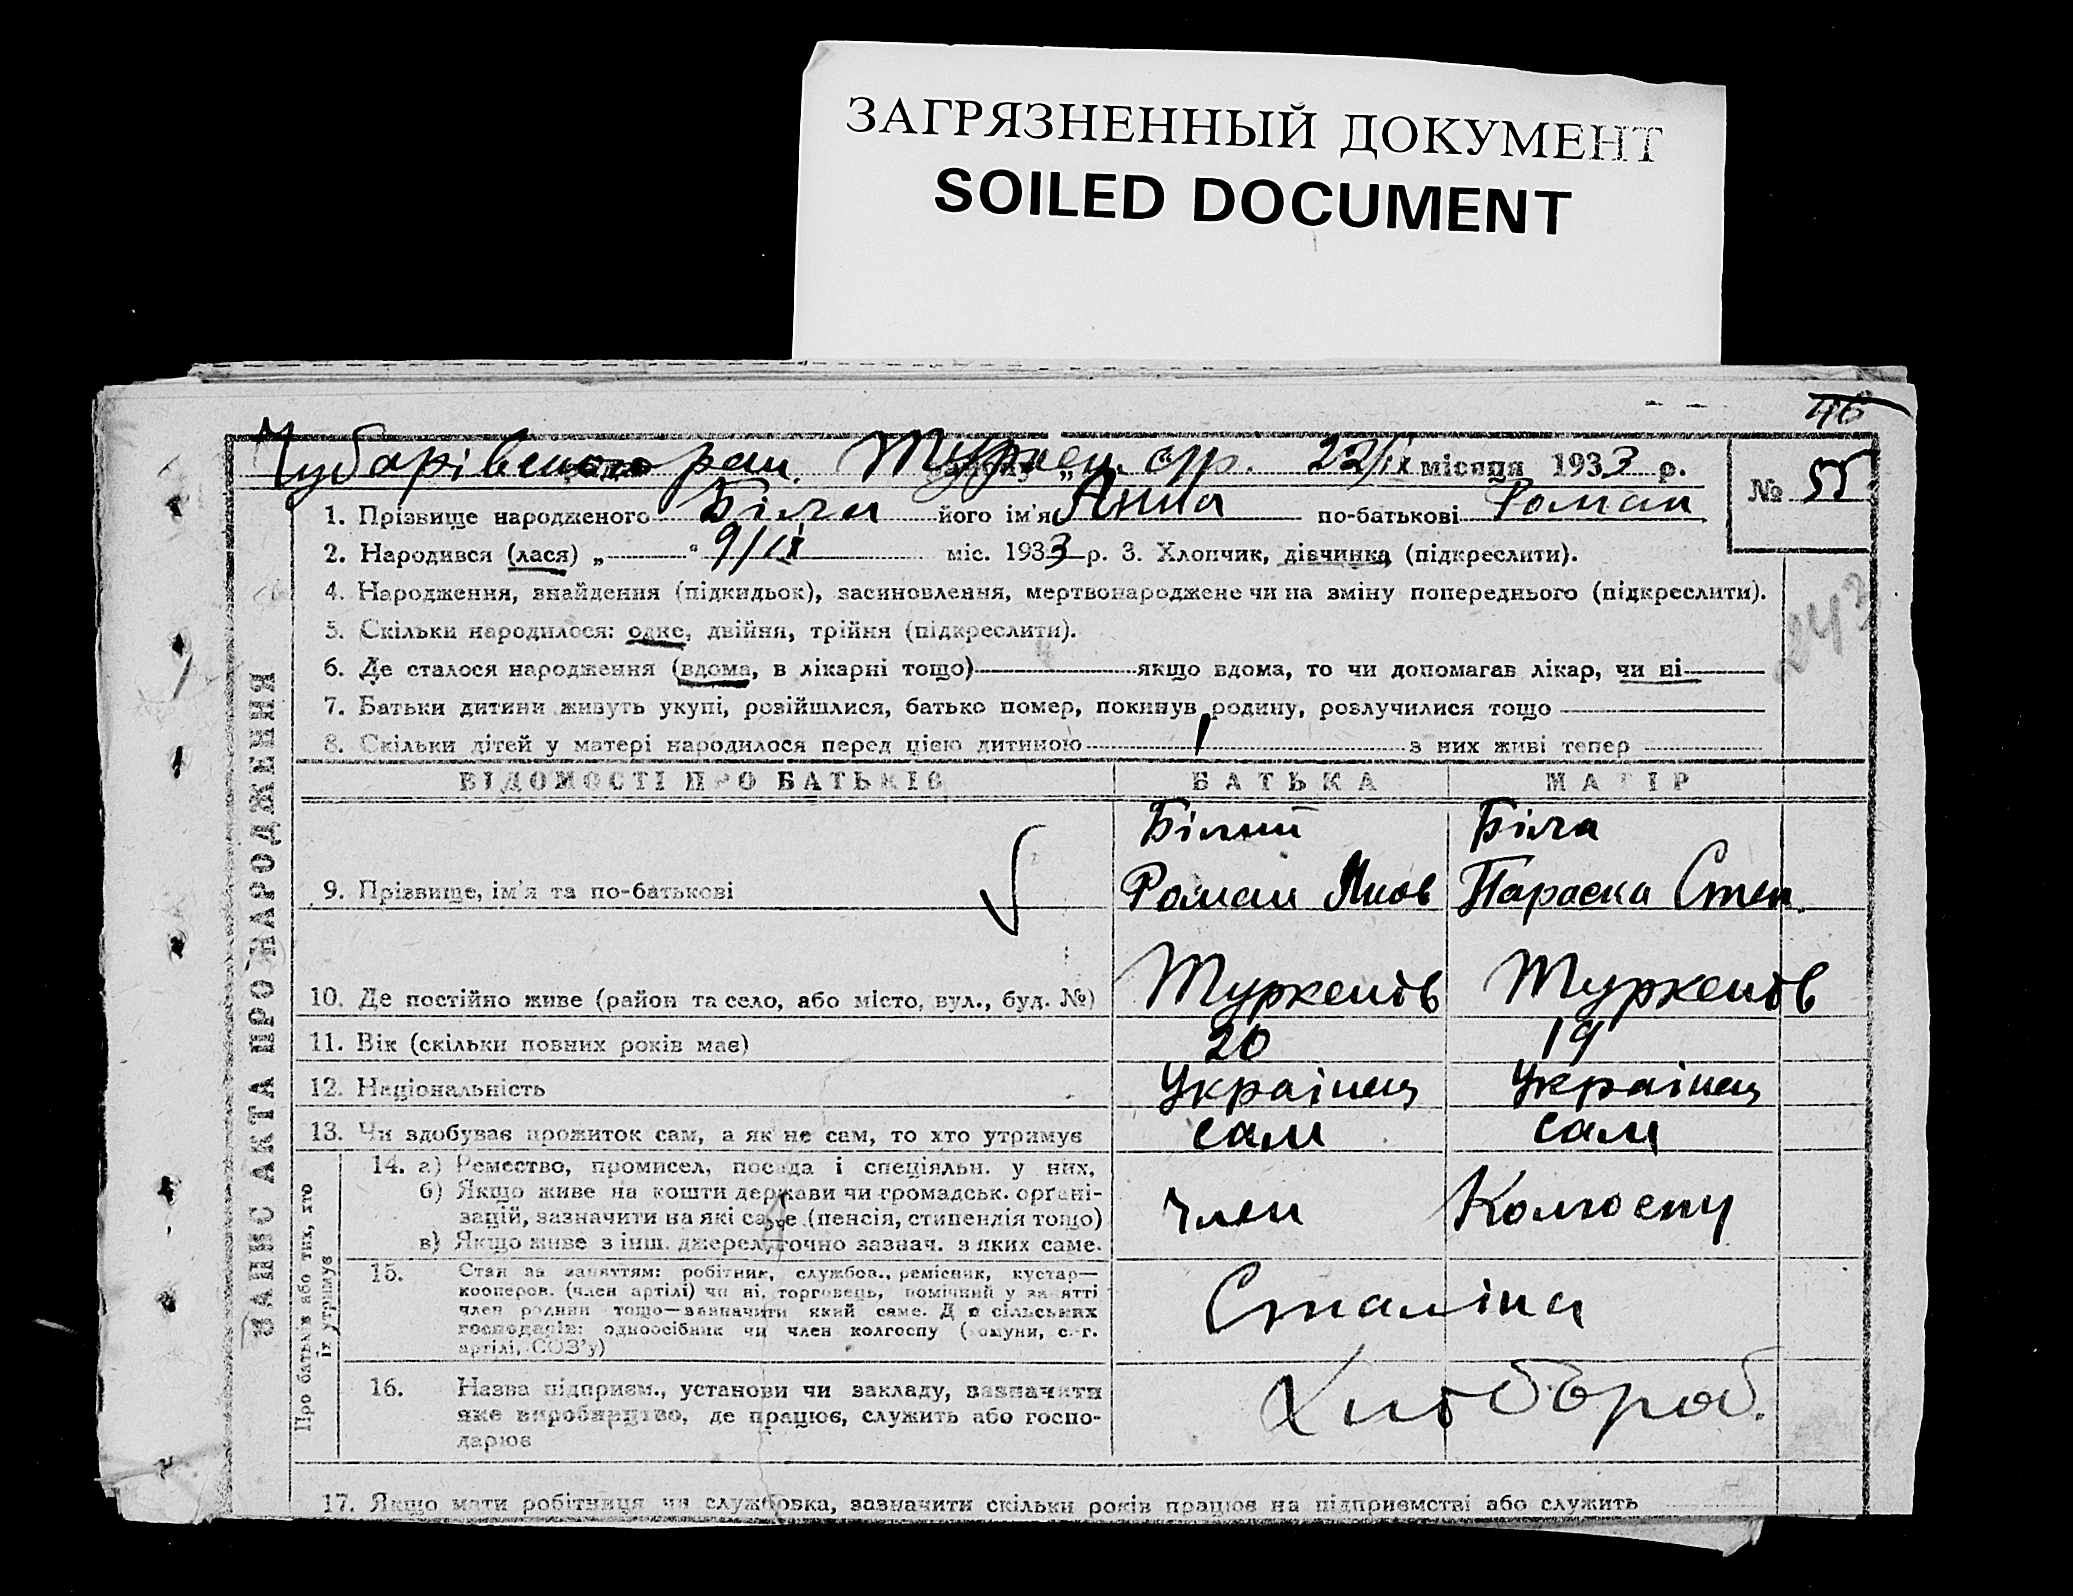 ЗАГРЯЗНЕННЫЙ ДОКУМЕНТ
SOILED DOCUMENT
46
Чубарівського рай. Туркен. с/р. 22/IX місяця 1933 р.
№ 55
1. Прізвище народженого Біла його ім'я Анна по-батькові Роман
2. Народився (лася) „ " 9/IX міс. 1933 р. 3. Хлопчик, дівчинка (підкреслити).
4. Народження, знайдення (підкидьок), засиновлення, мертвонароджене чи на зміну попереднього (підкреслити).
5. Скільки народилося: одне, двійня, трійня (підкреслити).
6. Де сталося народження (вдома, в лікарні тощо) якщо вдома, то чи допомагав лікар, чи ні
7. Батьки дитини живуть укупі, розійшлися, батько помер, покинув родину, розлучилися тощо
8. Скільки дітей у матері народилося перед цією дитиною 1 з них живі тепер
ЗАПИС АКТА ПРО НАРОДЖЕННЯ
ВІДОМОСТІ ПРО БАТЬКІВ БАТЬКА МАТІР
Білий Біла
9. Прізвище, ім'я та по-батькові Роман Яков Параска Степ.
10. Де постійно живе (район та село, або місто, вул., буд. №) Туркенов Туркенов
11. Вік (скільки повних років має) 20 19
12. Національність Українец Українец
13. Чи здобуває прожиток сам, а як не сам, то хто утримує сам сам
Про батьків або тих, хто їх утримує
14. а) Ремество, промисел, посада і спеціяльн. у них,
б) Якщо живе на кошти держави чи громадськ. органі-
зацій, зазначити на які саме (пенсія, стипендія тощо) член Колгоспу
в) Якщо живе з інш. джерел, точно зазнач. з яких саме.
15. Стан за заняттям: робітник, службов., ремісник, кустар—
кооперов. (член артілі) чи ні, торговець, помічний у занятті
член родини тощо—зазначити який саме. Для сільських Сталіна
господарів: одноосібник чи член колгоспу (комуни, с.-г.
артілі, СОЗ'у)
16. Назва підприєм., установи чи закладу, зазначити
яке виробництво, де працює, служить або госпо- Хлібороб.
дарює
17. Якщо мати робітниця чи службовка, зазначити скільки років працює на підприємстві або служить